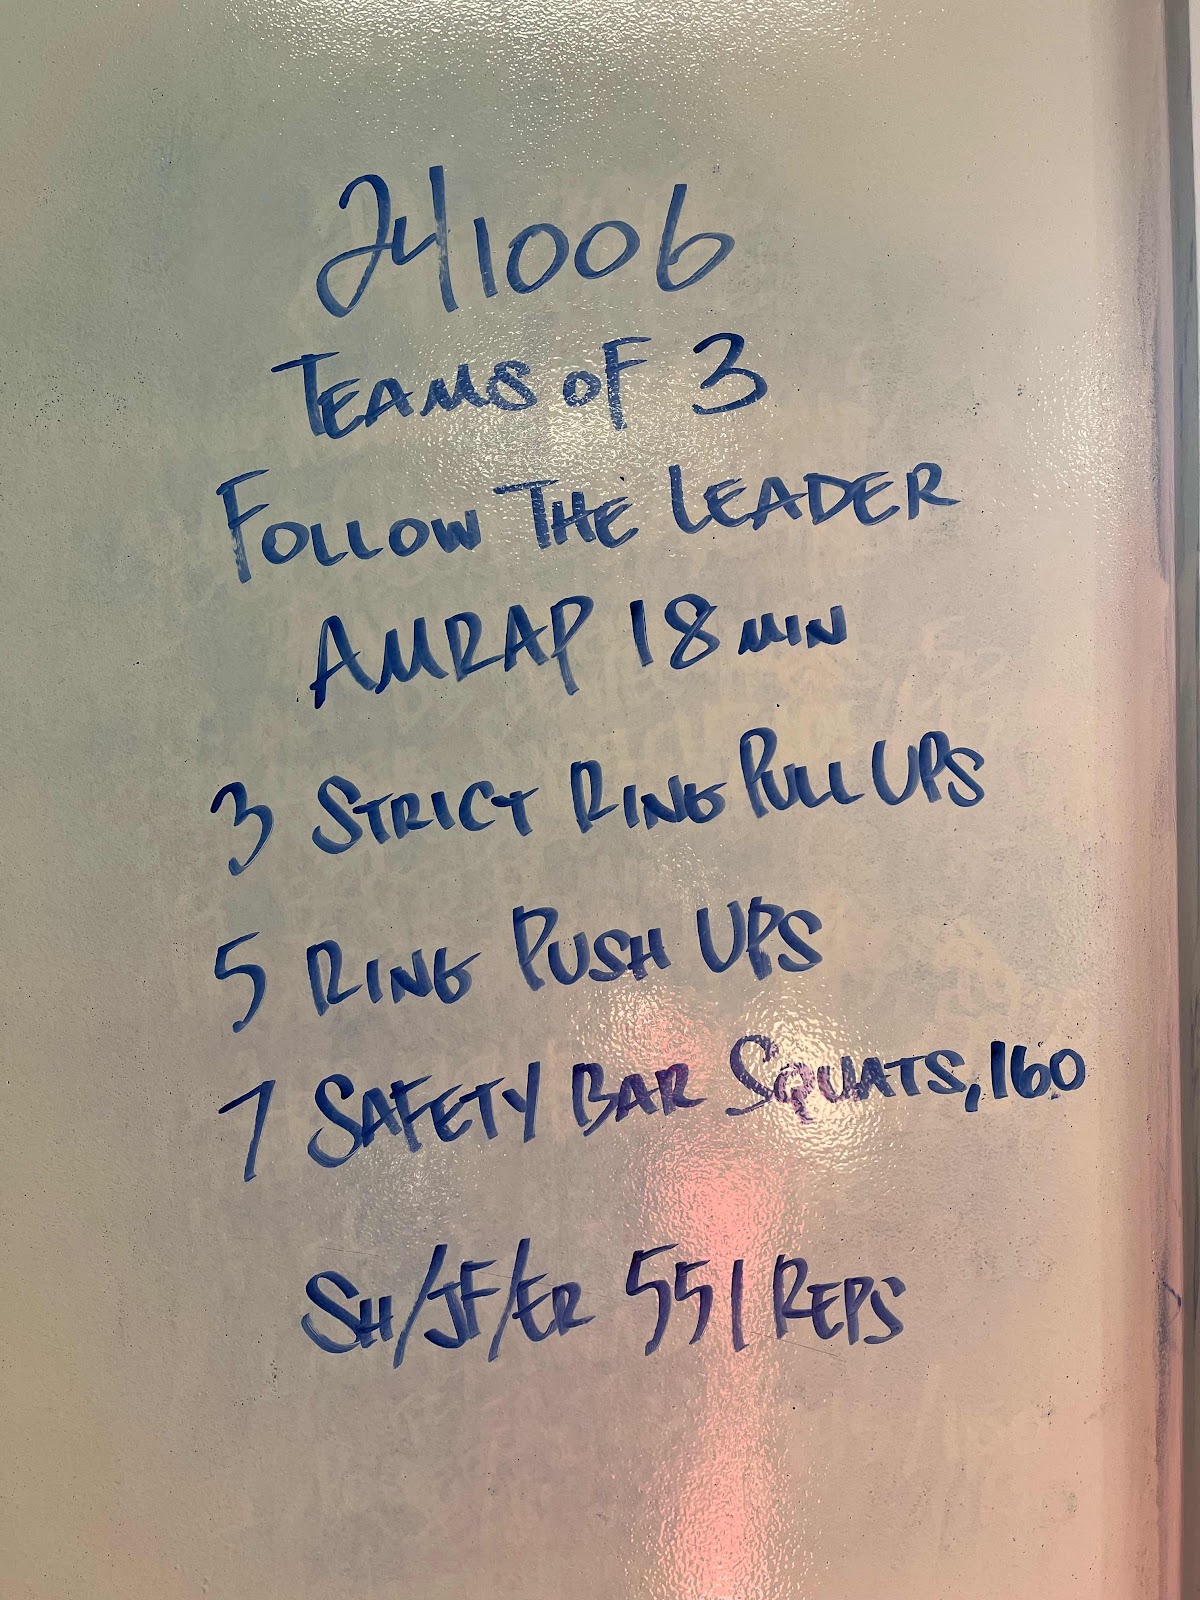 241006
TEAMS OF 3
FOLLOW THE LEADER
AMRAP 18 MIN
3 STRICT RING PULL UPS
5 RING PUSH UPS
7 SAFETY BAR SQUATS, 160
SH/JF/ER 551 REPS